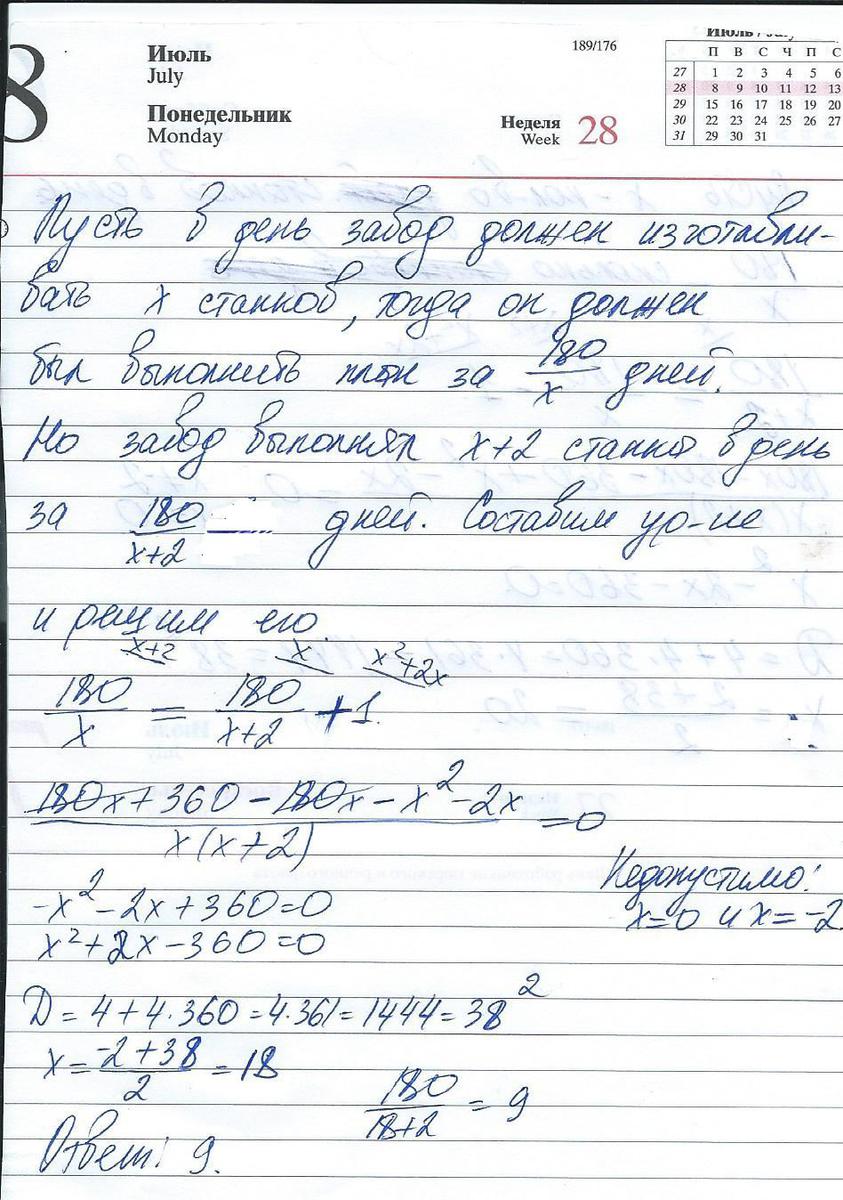 8
Июль
July
Понедельник
Monday
189/176
Неделя
Week 28
Июль / July
П В С Ч П С
27 1 2 3 4 5 6
28 8 9 10 11 12 13
29 15 16 17 18 19 20
30 22 23 24 25 26 27
31 29 30 31
Пусть в день завод должен изготавли-
вать x станков, тогда он должен
был выполнить план за 180/x дней.
Но завод выполнял x+2 станка в день
за 180/(x+2) дней. Составим ур-ие
и решим его.
x+2 x x²+2x
180/x = 180/(x+2) + 1
(180x + 360 - 180x - x² - 2x)/(x(x+2)) = 0
Недопустимо:
x=0 и x=-2
-x² - 2x + 360 = 0
x² + 2x - 360 = 0
D = 4 + 4·360 = 4·361 = 1444 = 38²
x = (-2+38)/2 = 18
180/(18+2) = 9
Ответ: 9.